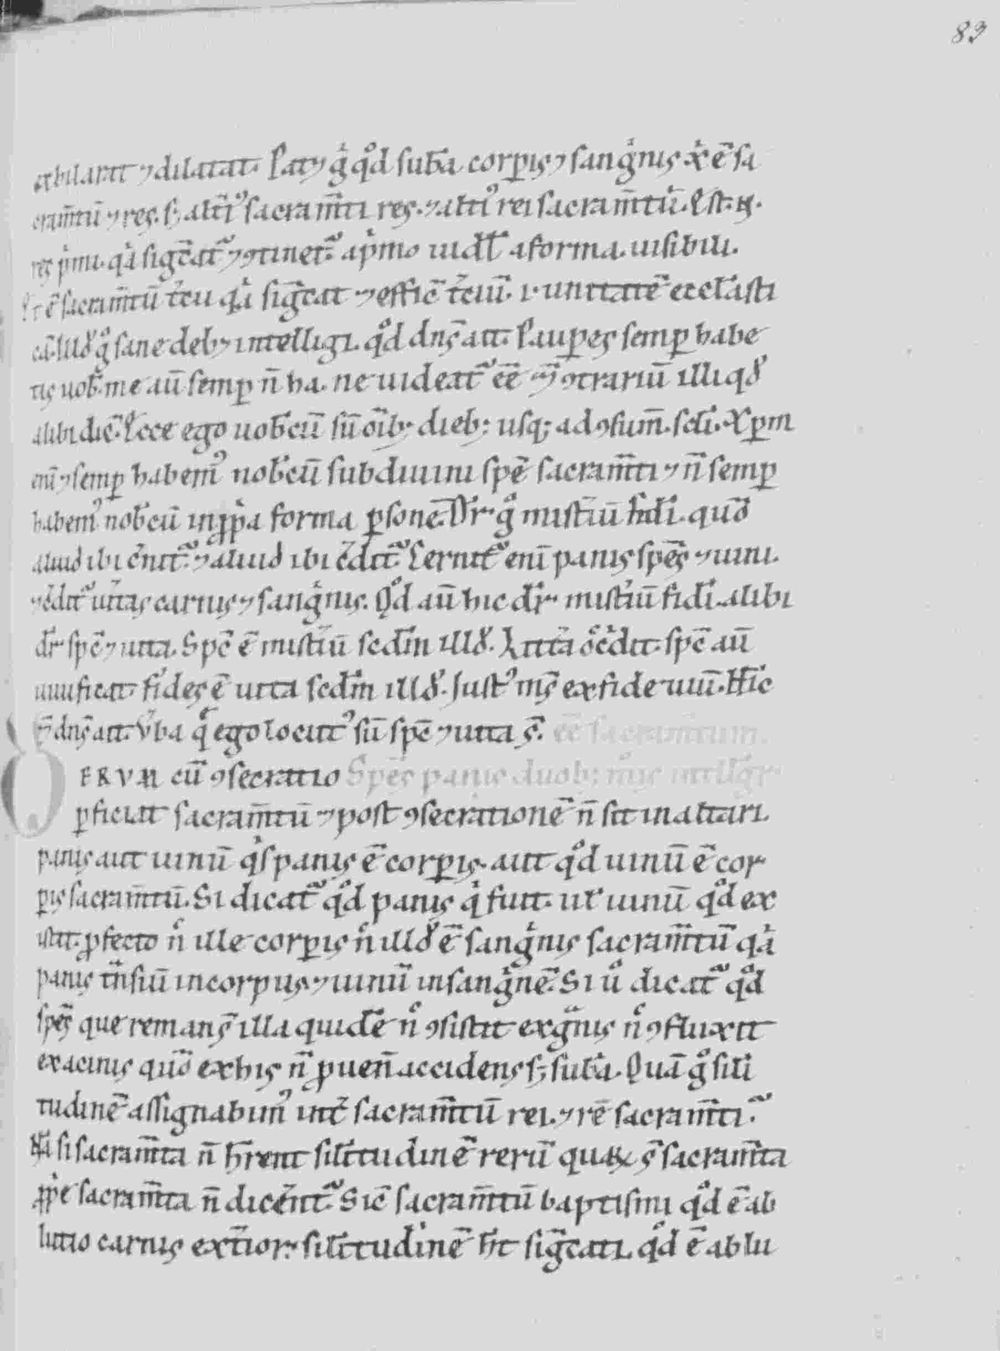 83
exhilarat ⁊ dilatat. Patꝫ gͥ qͦd ſubͣa corꝑis ⁊ ſangͥnis xͥ ē ſa
cram̄tū ⁊ res. ſꝫ altiꝰ ſacram̄ti res. ⁊ altiꝰ rei ſacram̄tū. Eſt.
res pͥmi. qͥa ſigc̄at᷑ ⁊ ꝯtinet᷑ a pͥmo uidl̄ a forma uiſibili.
Itē ē ſacram̄tū t̾cii qͥa ſigc̄at ⁊ efficē t̾ciū. i. unitatē eccl̄aſti
cā. Illd̾ gͦ ſane debꝫ intelligi. qͦd dn̄s ait. Pauꝑes ſemꝑ habe
tis uob̄. me aū ſemꝑ n̄ ha. ne uideat᷑ eē ꝯtrariū illi qd̾
alibi dic̄. Ecce ego uob̄cū ſū oīb; dieb; uſq; ad ꝯſum̄. ſcl̄i. Xp̄m
eni ⁊ ſemꝑ habemꝰ nob̄cū ſub diuini ſpē ſacram̄ti ⁊ n̄ ſemꝑ
habemꝰ nob̄cū in ꝓpͥa forma ꝑſone. Dr̄ gͦ miſt̾iū fidi. quod̾
aliud ibi c̾nit᷑ ⁊ aliud ibi c̾dit᷑. Cernit᷑ enī panis ſpēs ⁊ uini.
⁊ c̾dit᷑ u̾itas carnis ⁊ ſangͥnis. Qͦd aū hic dr̄ miſt̾iū fidi. alibi
dr̄ ſpc̄ ⁊ uita. Spc̄ ē miſt̾iū ſcdm̄ illd̾. Litt̾a occ̾dit. ſpc̄ aū
uiuificat. fides ē uita ſcdm̄ illd̾. Juſtꝰ mͥs ex fide uiuī. Hīc
dn̄s ait. V̾ba q̄ ego locutꝰ ſū ſpc̄ ⁊ uita s̄. eē ſacramtum.
VERVM cū ꝯſecratio Speēs panis duob; intllg̾
ꝑficiat ſacram̄tū ⁊ poſt ꝯſecrationē n̄ ſit in altari
panis aut uinū qͥſ panis ē corꝑis. aut qͦd uinū ē cor
ꝑis ſacram̄tū. Si dicat᷑ qͦd panis qͥ fuit. ut̾ uinū qͦd ex
titit. ꝓfecto nͨ ille corꝑis nͨ illd̾ ē ſangͥnis ſacram̄tū qͥa
panis tn̄ſiū in corpus ⁊ uinū in ſangͥnē. Si uͦ dicat᷑ qͦd
ſpēs que remans̄ illa quidē nͨ ꝯſiſtit ex gͣnis nͨ ꝯfluxit
ex acinis quō ex his n̄ ꝓuen̄ accidens ſꝫ ſubͣa. Quā gͦ ſili
tudinē aſſignabimꝰ int̾ ſacram̄tū rei. ⁊ rē ſacram̄ti
Nā ſi ſacram̄ta n̄ hr̄ent ſil̄itudinē rerū quaꝝ s̄ ſacram̄ta
ꝓpͥe ſacram̄ta n̄ dicen̄t᷑. Sic̄ ſacram̄tū baptiſmi qͦd ē ab
lutio carnis ext̾ior ſil̄itudinē hꝫt ſigc̄ati. qͦd ē ablu